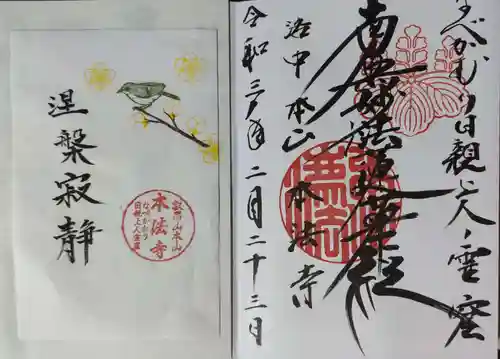 涅槃寂靜
叡昌山本山
本法寺
なべかむり
日親上人霊窟
なべかむり日親上人ノ霊窟
南無妙法蓮華経
洛中本山 本法寺
令和三年二月二十三日